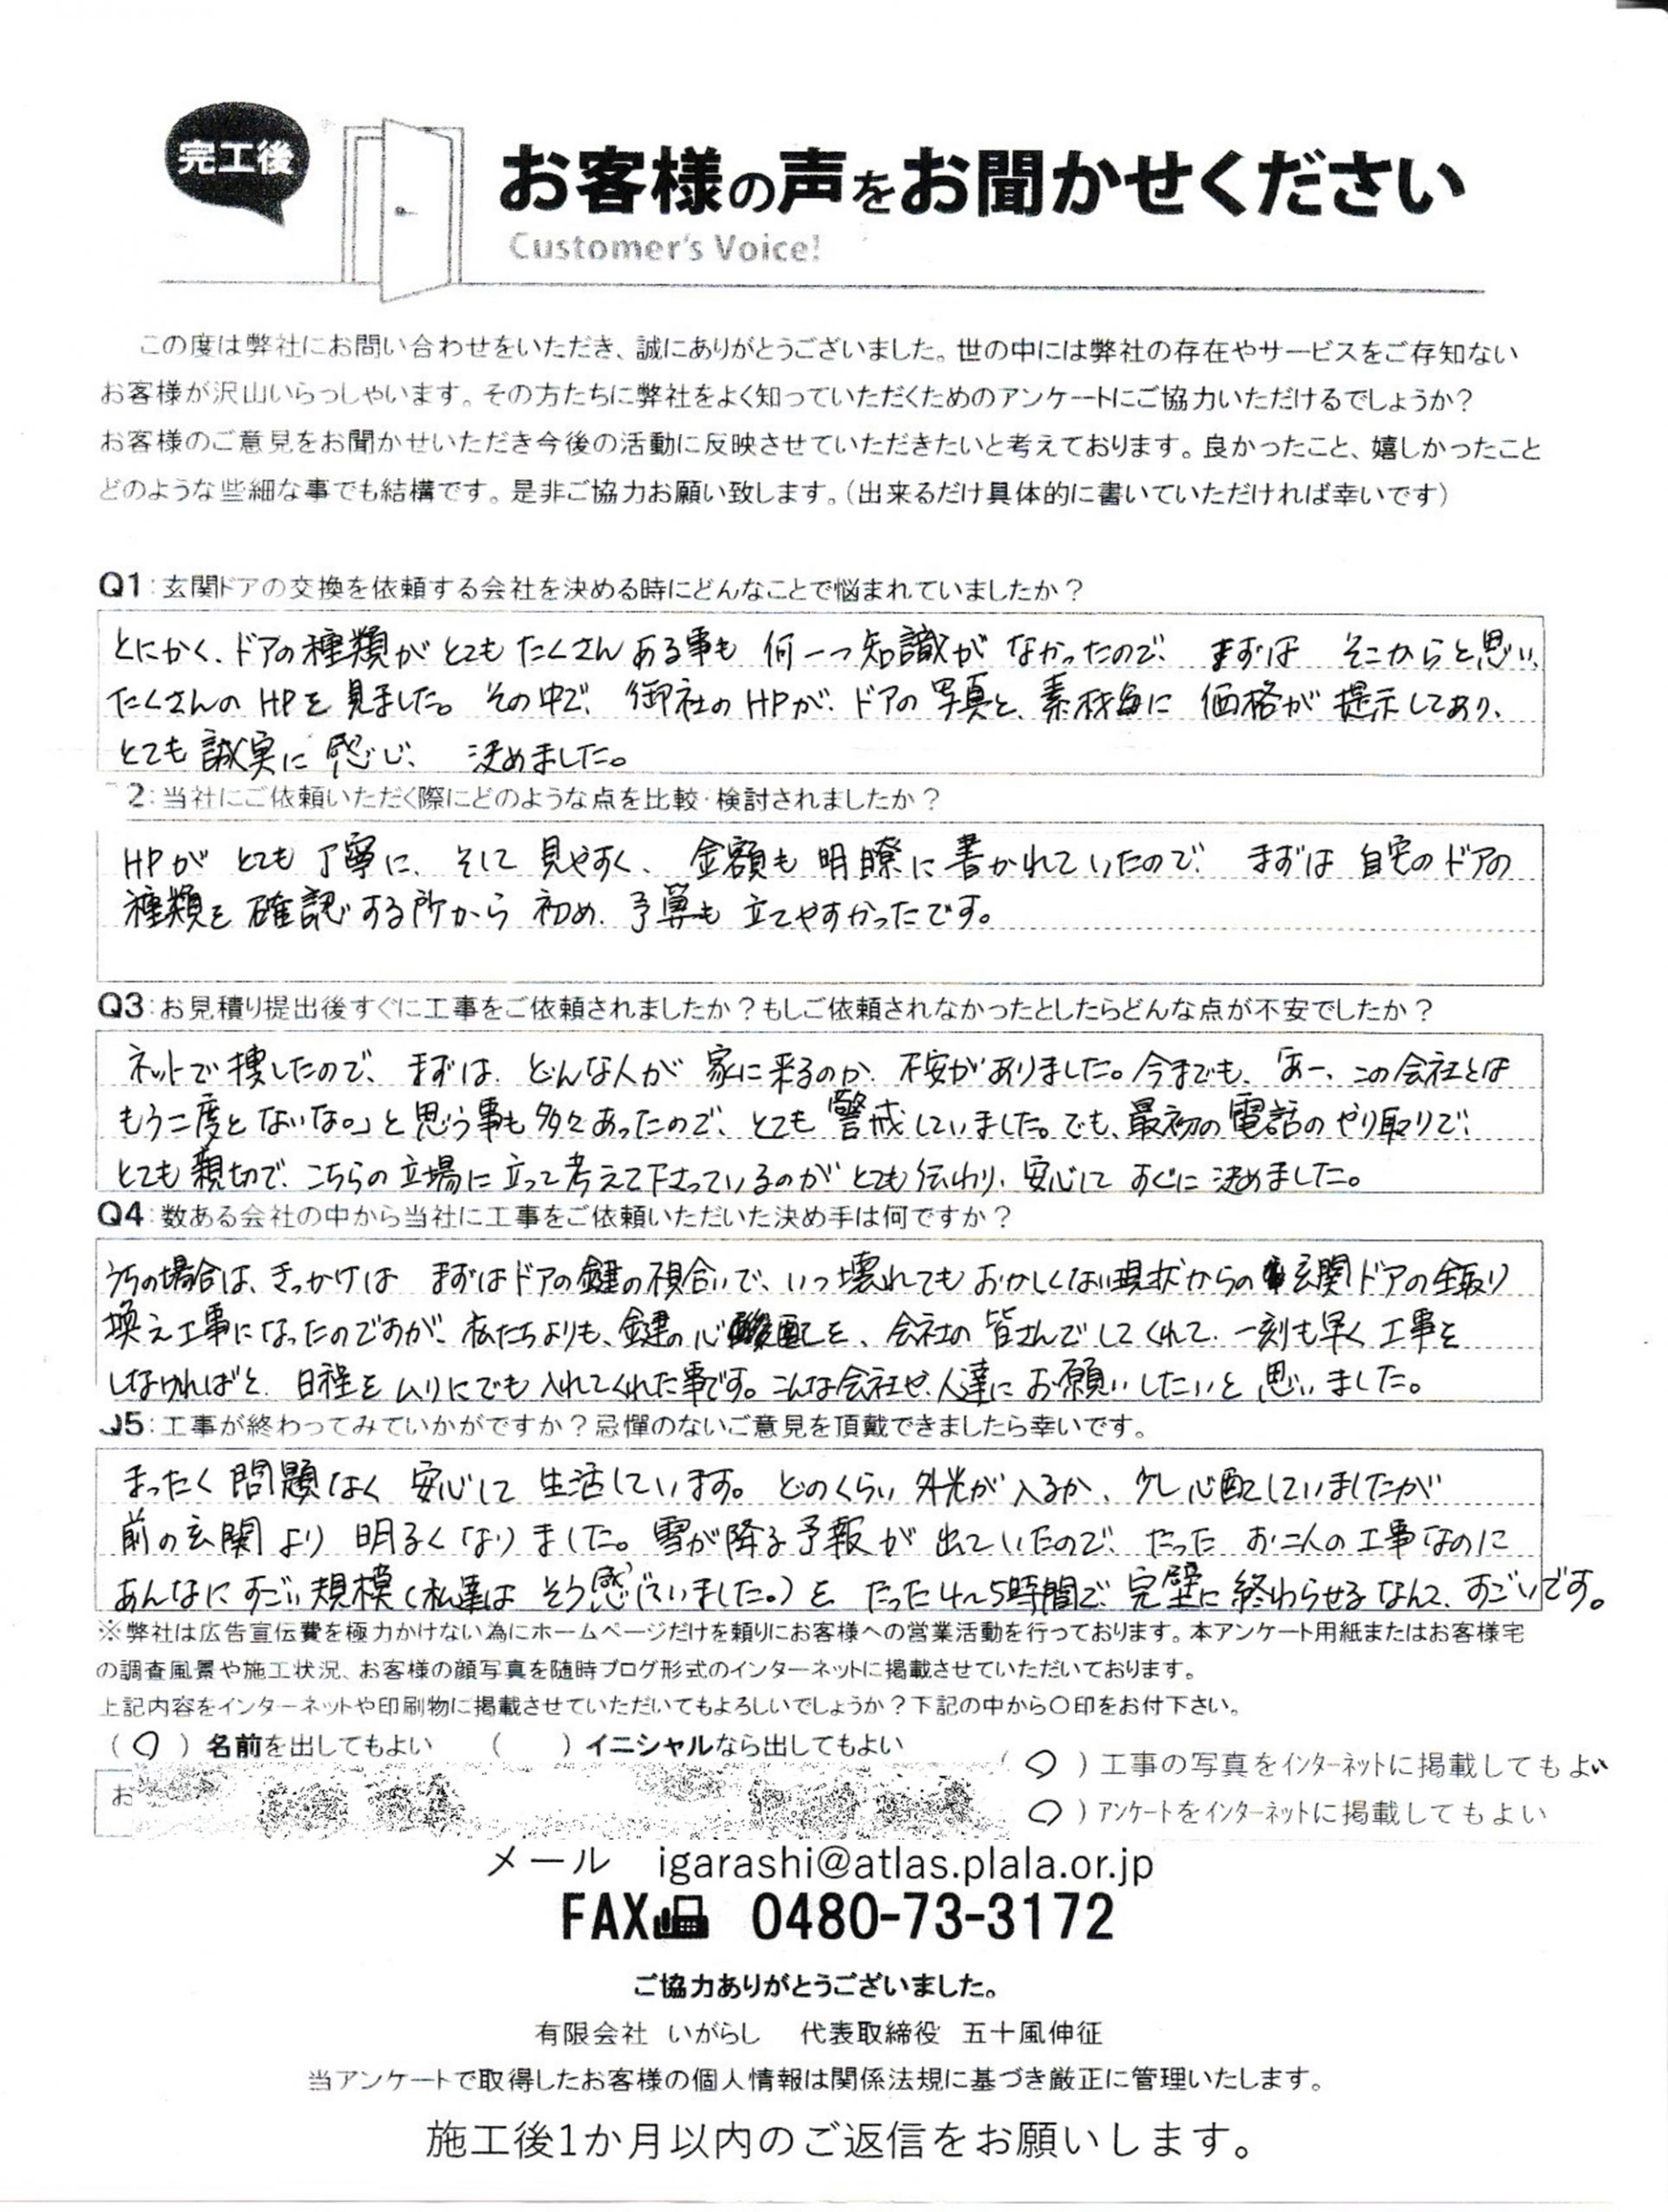 完工後
お客様の声をお聞かせください
Customer's Voice!
この度は弊社にお問い合わせをいただき、誠にありがとうございました。世の中には弊社の存在やサービスをご存知ない
お客様が沢山いらっしゃいます。その方たちに弊社をよく知っていただくためのアンケートにご協力いただけるでしょうか?
お客様のご意見をお聞かせいただき今後の活動に反映させていただきたいと考えております。良かったこと、嬉しかったこと
どのような些細な事でも結構です。是非ご協力お願い致します。(出来るだけ具体的に書いていただければ幸いです)
Q1:玄関ドアの交換を依頼する会社を決める時にどんなことで悩まれていましたか?
とにかく、ドアの種類がとてもたくさんある事も何一つ知識がなかったので、まずは そこからと思い、
たくさんのHPを見ました。その中で、御社のHPが、ドアの写真と、素材毎に価格が提示してあり、
とても誠実に感じ、決めました。
2:当社にご依頼いただく際にどのような点を比較・検討されましたか?
HPがとても丁寧に、そして見やすく、金額も明瞭に書かれていたので、まずは自宅のドアの
種類を確認する所から初め、予算も立てやすかったです。
Q3:お見積り提出後すぐに工事をご依頼されましたか?もしご依頼されなかったとしたらどんな点が不安でしたか?
ネットで捜したので、まずは、どんな人が家に来るのか、不安がありました。今までも、「あー、この会社とは
もう二度とないな。」と思う事も多々あったので、とても警戒していました。でも、最初の電話のやり取りで、
とても親切で、こちらの立場に立って考えて下さっているのがとても伝わり、安心してすぐに決めました。
Q4:数ある会社の中から当社に工事をご依頼いただいた決め手は何ですか?
うちの場合は、きっかけは まずはドアの鍵の不具合で、いつ壊れてもおかしくない現状からの玄関ドアの全取り
換え工事になったのですが、私たちよりも、鍵の心配を、会社の皆さんでしてくれて、一刻も早く工事を
しなければと、日程をムリにでも入れてくれた事です。こんな会社や、人達にお願いしたいと思いました。
Q5:工事が終わってみていかがですか?忌憚のないご意見を頂戴できましたら幸いです。
まったく問題なく安心して生活しています。どのくらい外光が入るか、少し心配していましたが
前の玄関より明るくなりました。雪が降る予報が出ていたので、たったお二人の工事なのに
あんなにすごい規模(私達はそう感じていました。)を たった4~5時間で、完璧に終わらせるなんて、すごいです。
※弊社は広告宣伝費を極力かけない為にホームページだけを頼りにお客様への営業活動を行っております。本アンケート用紙またはお客様宅
の調査風景や施工状況、お客様の顔写真を随時ブログ形式のインターネットに掲載させていただいております。
上記内容をインターネットや印刷物に掲載させていただいてもよろしいでしょうか?下記の中から〇印をお付下さい。
(〇)名前を出してもよい ( )イニシャルなら出してもよい
(〇)工事の写真をインターネットに掲載してもよい
お
〇)アンケートをインターネットに掲載してもよい
メール igarashi@atlas.plala.or.jp
FAX 0480-73-3172
ご協力ありがとうございました。
有限会社 いがらし 代表取締役 五十嵐伸征
当アンケートで取得したお客様の個人情報は関係法規に基づき厳正に管理いたします。
施工後1か月以内のご返信をお願いします。